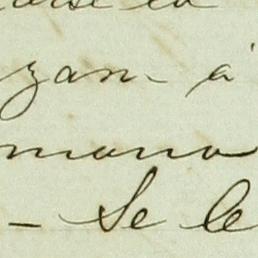 zan - á
mano
- Se le